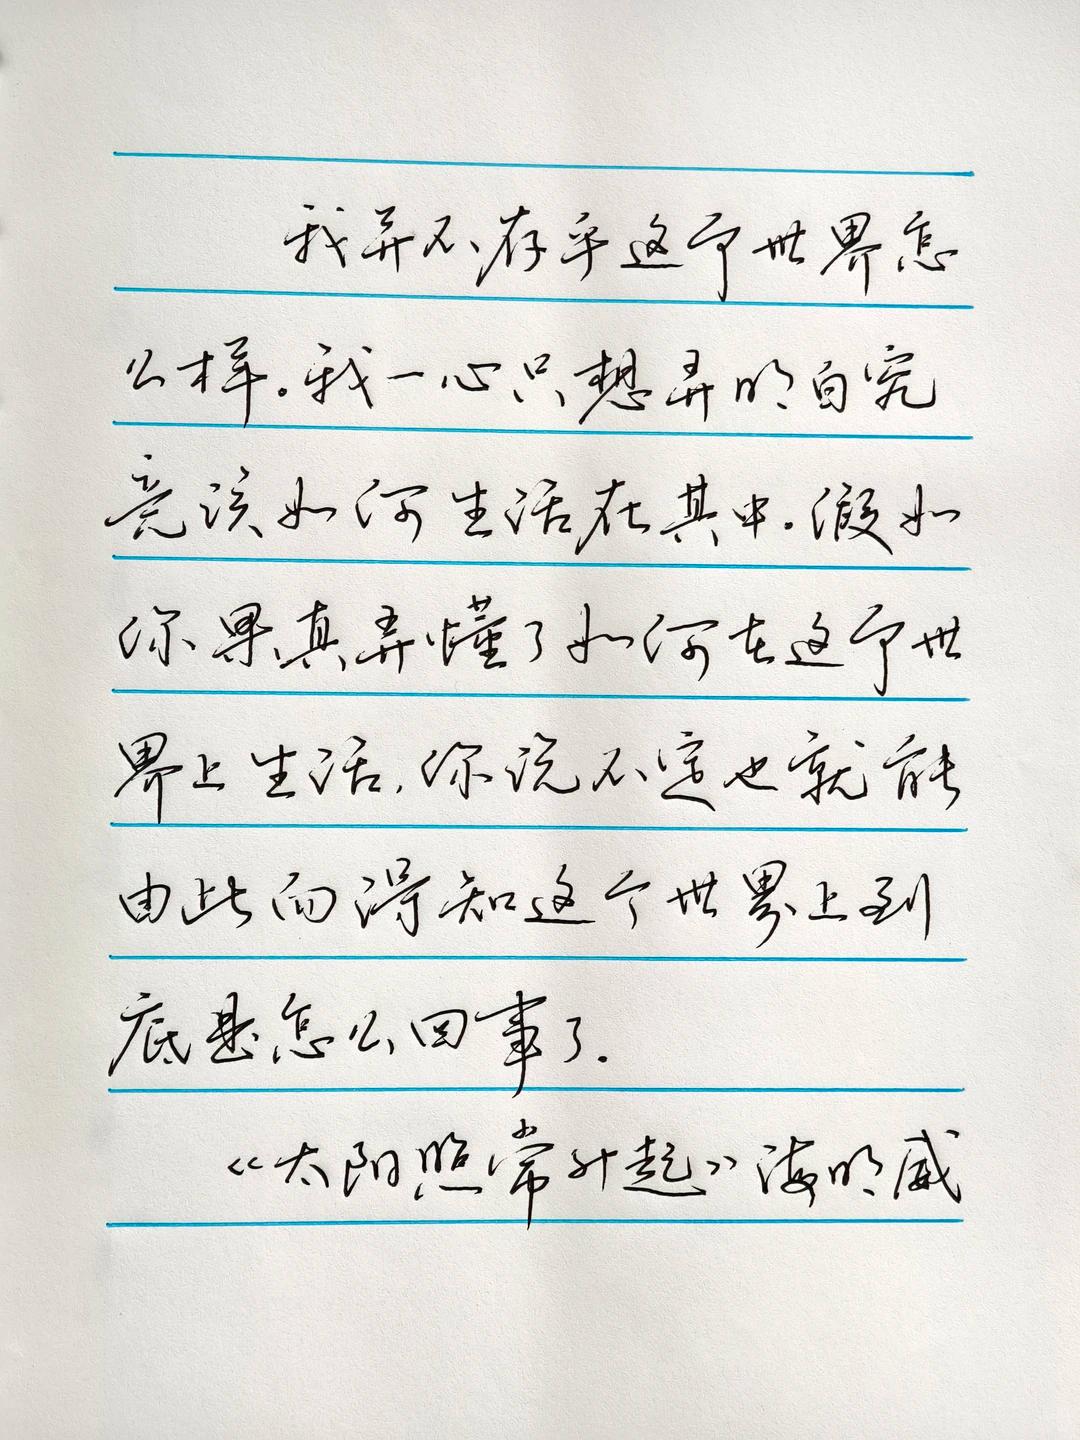 我并不在乎这个世界怎
么样。我一心只想弄明白究
竟该如何生活在其中。假如
你果真弄懂了如何在这个世
界上生活,你说不定也就能
由此而得知这个世界上到
底是怎么回事了.
《太阳照常升起》海明威